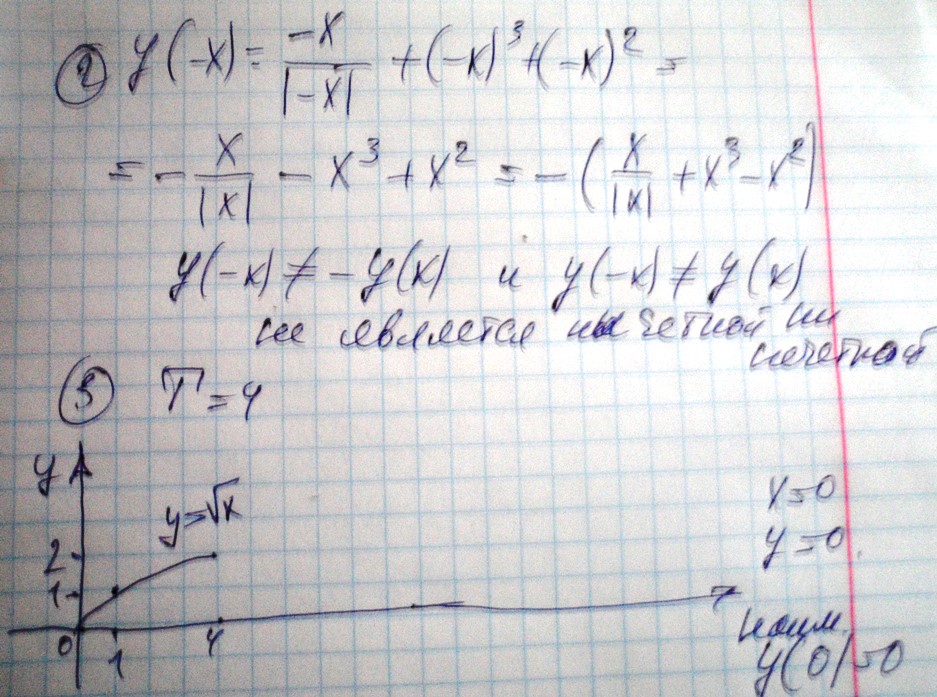 ② y(-x) = -x/|-x| + (-x)³ + (-x)² =
= - x/|x| - x³ + x² = - (x/|x| + x³ - x²)
y(-x) ≠ -y(x) и y(-x) ≠ y(x)
не является ни четной ни
нечетной
③ T = 4
y
y = √x
x = 0
y = 0
2
1
0
1
4
наим.
y(0) = 0